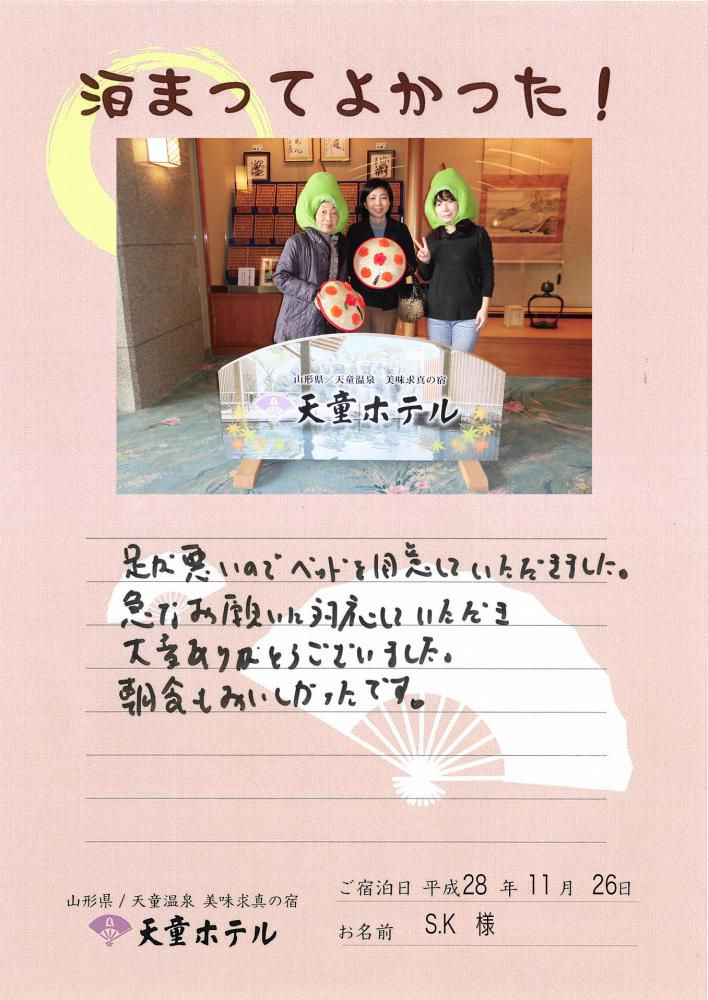 泊まってよかった！
山形県／天童温泉 美味求真の宿
天童ホテル
足が悪いのでベッドを用意していただきました。
急なお願いに対応していただき
大変ありがとうございました。
朝食もおいしかったです。
ご宿泊日 平成28 年 11 月 26日
山形県 / 天童温泉 美味求真の宿
天童ホテル
お名前 S.K 様